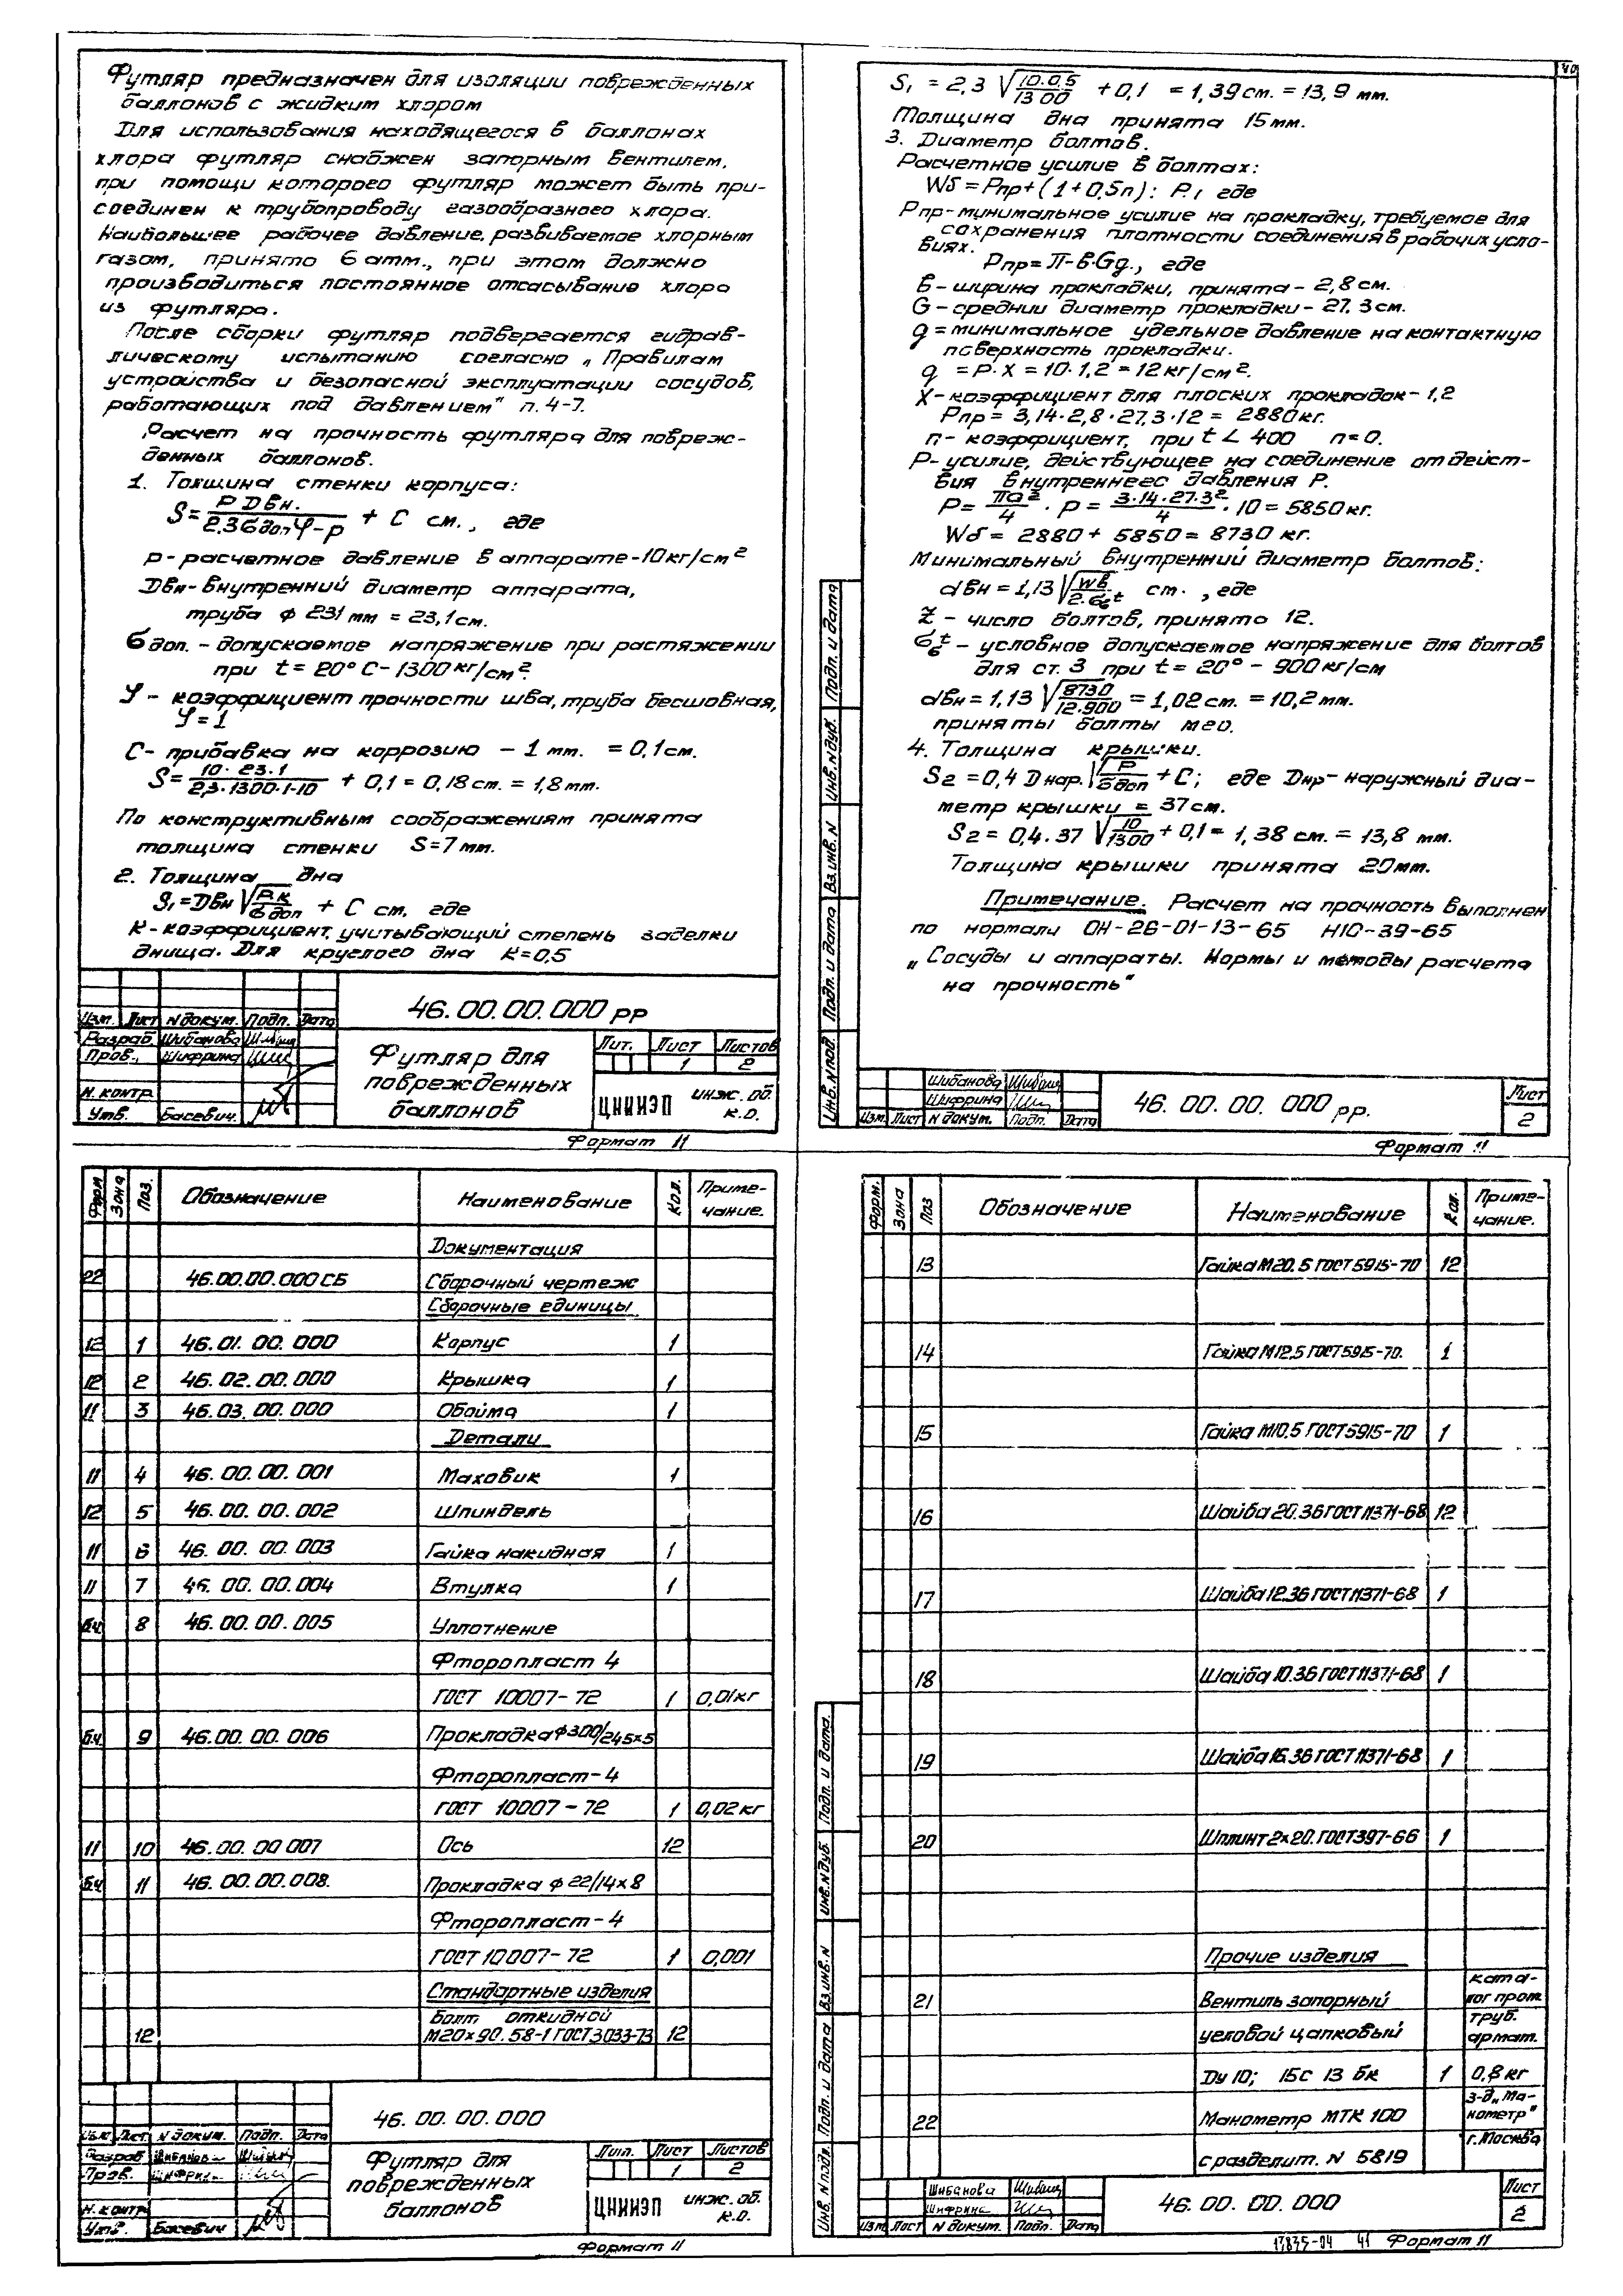 Футляр предназначен для изоляции поврежденных
баллонов с жидким хлором
Для использования находящегося в баллонах
хлора футляр снабжен запорным вентилем,
при помощи которого футляр может быть при-
соединен к трубопроводу газообразного хлора.
Наибольшее рабочее давление, развиваемое хлорным
газом, принято 6 атм., при этом должно
производиться постоянное отсасывание хлора
из футляра.
После сборки футляр подвергается гидрав-
лическому испытанию согласно „Правилам
устройства и безопасной эксплуатации сосудов,
работающих под давлением" п. 4-7.
Расчет на прочность футляра для повреж-
денных баллонов.
1. Толщина стенки корпуса:
S = P Dвн. / 2.3 σдоп φ-p + C см., где
p - расчетное давление в аппарате - 10 кг/см²
Dвн - внутренний диаметр аппарата,
труба ф 231 мм = 23,1 см.
σ доп. - допускаемое напряжение при растяжении
при t = 20° C - 1300 кг/см².
φ - коэффициент прочности шва, труба бесшовная,
φ = 1
С - прибавка на коррозию - 1 мм. = 0,1 см.
S = 10·23.1 / 2,3·1300·1-10 + 0,1 = 0,18 см. = 1,8 мм.
По конструктивным соображениям принята
толщина стенки S = 7 мм.
2. Толщина дна
S₁ = Dвн √P.K / σ доп + C см, где
К - коэффициент, учитывающий степень заделки
днища. Для круглого дна К = 0,5
46.00.00.000 РР
Изм. Лист N докум. Подп. Дата
Разраб Шибанова
Пров. Шифрина
Н. контр
Утв. Басевич.
Футляр для
поврежденных
баллонов
Лит. Лист Листов
1 2
ЦНИИЭП инж. об.
к.о.
Формат 11
40
S₁ = 2,3 √10.0,5 / 1300 + 0,1 = 1,39 см. = 13,9 мм.
Толщина дна принята 15 мм.
3. Диаметр болтов.
Расчетное усилие в болтах:
Wб = Pпр + (1 + 0,5п) : P., где
Рпр - минимальное усилие на прокладку, требуемое для
сохранения плотности соединения в рабочих усло-
виях.
Pпр = П - в·Gg., где
б - ширина прокладки, принята - 2,8 см.
G - средний диаметр прокладки - 27,3 см.
g = минимальное удельное давление на контактную
поверхность прокладки.
g = P·X = 10·1,2 = 12 кг/см².
X - коэффициент для плоских прокладок - 1,2
Pпр = 3,14·2,8·27,3·12 = 2880 кг.
п - коэффициент, при t < 400 п = 0.
Р - усилие, действующее на соединение от дейст-
вия внутреннего давления Р.
P = Пd² / 4 · P = 3.14·27.3² / 4 · 10 = 5850 кг.
Wб = 2880 + 5850 = 8730 кг.
Минимальный внутренний диаметр болтов:
dвн = 1,13 √Wв / 2.σб t см., где
Z - число болтов, принято 12.
σб t - условное допускаемое напряжение для болтов
для ст. 3 при t = 20° - 900 кг/см
dвн = 1,13 √8730 / 12.900 = 1,02 см. = 10,2 мм.
приняты болты м20.
4. Толщина крышки.
S2 = 0,4 Dнар. √P / σдоп + C; где Dнр - наружный диа-
метр крышки = 37 см.
S2 = 0,4·37 √10 / 1300 + 0,1 = 1,38 см. = 13,8 мм.
Толщина крышки принята 20 мм.
Примечание. Расчет на прочность выполнен
по нормали ОН-26-01-13-65 Н10-39-65
„Сосуды и аппараты. Нормы и методы расчета
на прочность"
Инв. N подл. Подп. и дата Вз. инв. N Инв. N дуб. Подп. и дата
Шибанова
Шифрина
Изм. Лист N докум. Подп. Дата
46.00.00.000 РР.
Лист
2
Формат 11
Форм Зона Поз. Обозначение Наименование Кол. Приме-
чание.
Документация
22 46.00.00.000 СБ Сборочный чертеж
Сборочные единицы
12 1 46.01.00.000 Корпус 1
12 2 46.02.00.000 Крышка 1
11 3 46.03.00.000 Обойма 1
Детали
11 4 46.00.00.001 Маховик 1
12 5 46.00.00.002 Шпиндель
11 6 46.00.00.003 Гайка накидная 1
11 7 46.00.00.004 Втулка 1
бч 8 46.00.00.005 Уплотнение
Фторопласт 4
ГОСТ 10007-72 1 0,01кг
бч 9 46.00.00.006 Прокладка ф300/245х5
Фторопласт-4
ГОСТ 10007-72 1 0,02 кг
11 10 46.00.00 007 Ось 12
бч 11 46.00.00.008. Прокладка ф 22/14х8
Фторопласт-4
ГОСТ 10007-72 1 0,001
Стандартные изделия
Болт откидной
12 М20х90.58-1 ГОСТ 3033-73 12
46.00.00.000
Изм. Лист. N докум. Подп. Дата
Разраб Шибанова
Пров. Шифрина
Н. контр
Утв. Басевич
Футляр для
поврежденных
баллонов
Лит. Лист Листов
1 2
ЦНИИЭП инж. об.
к.о.
Формат 11
Форм. Зона Поз Обозначение Наименование Кол. Приме-
чание.
13 Гайка М20.5 ГОСТ 5915-70 12
14 Гайка М12.5 ГОСТ 5915-70. 1
15 Гайка М10.5 ГОСТ 5915-70 1
16 Шайба 20.36 ГОСТ 11371-68 12
17 Шайба 12.36 ГОСТ 11371-68 1
18 Шайба 10.36 ГОСТ 11371-68 1
19 Шайба 16.36 ГОСТ 11371-68 1
20 Шплинт 2х20. ГОСТ 397-66 1
Прочие изделия
21 Вентиль запорный ката-
лог пром.
угловой цапковый труб.
армат.
Ду 10; 15с 13 бк 1 0,8 кг
22 Манометр МТК 100 з-д „Ма-
нометр"
с разделит. N 5819 г. Москва
Инв. N подл. Подп. и дата Вз. инв. N Инв. N дуб. Подп. и дата.
Шибанова
Шифрина
Изм Лист N докум. Подп. Дата
46.00.00.000
Лист
2
13835-04 41 Формат 11